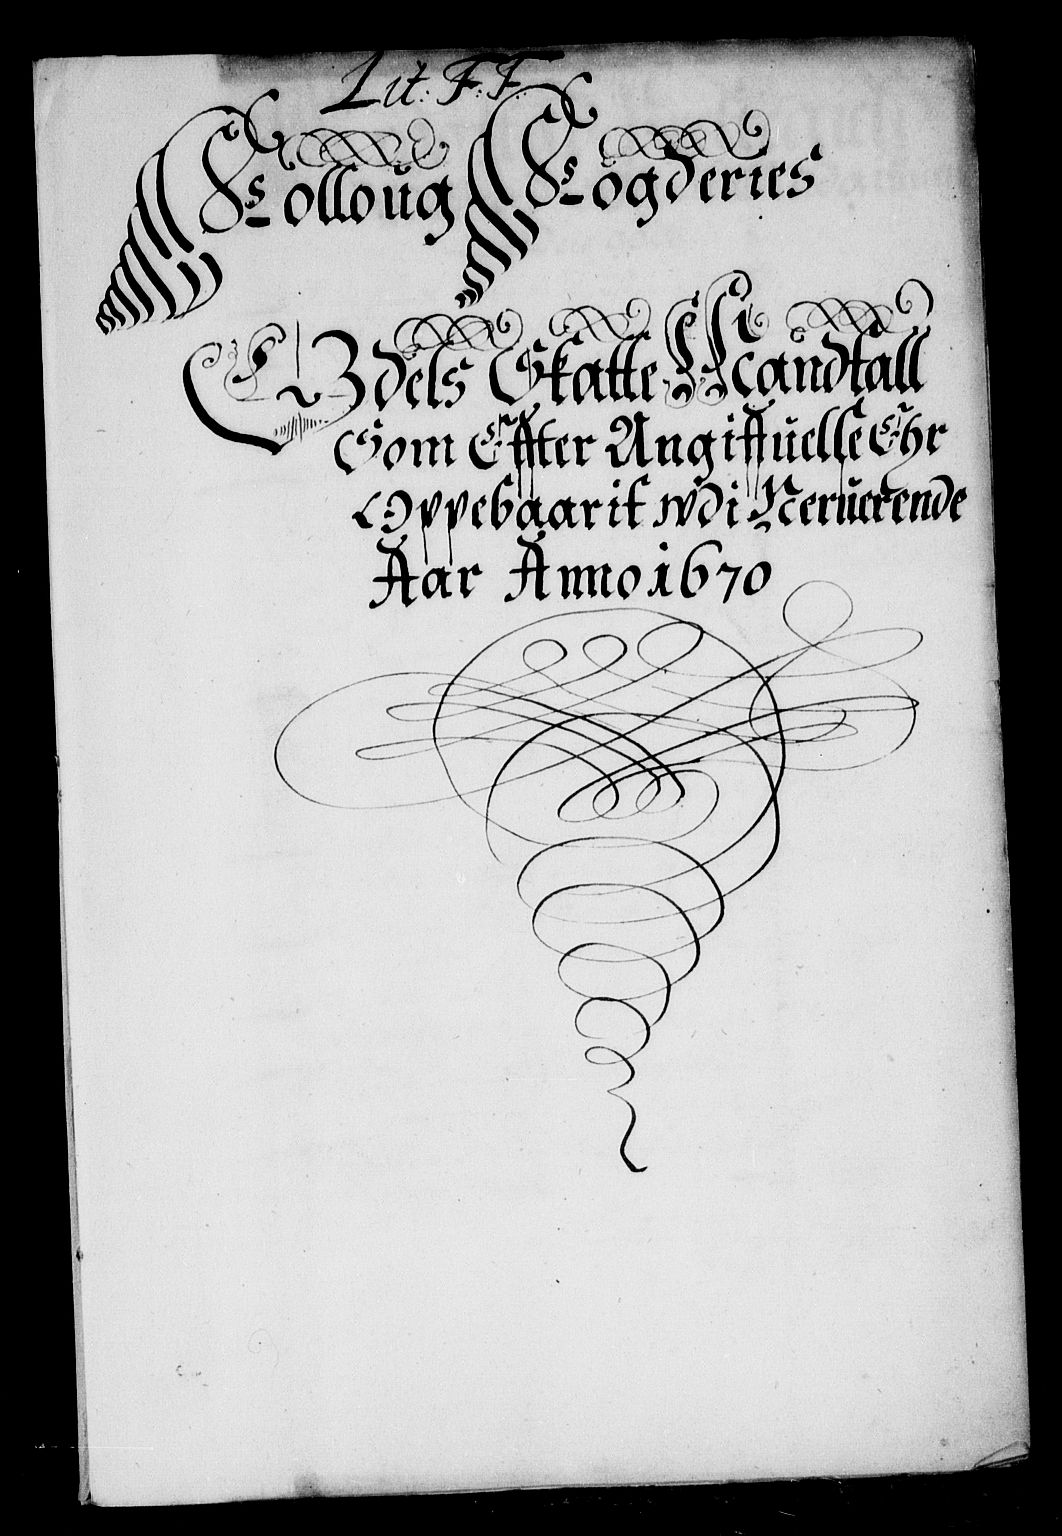 Lit: F.F.
Folloug Fögderies
Odels Skatte Mandtall
Som Effter Angiffuelse Ehr
Oppebaarit wdi Neruerende
Aar Anno 1670